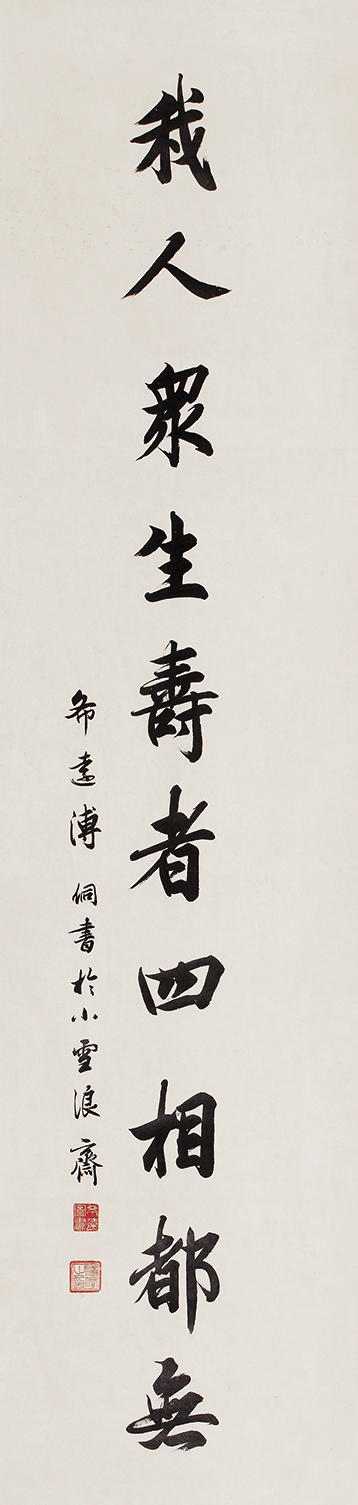 我人衆生壽者四相都無
希遠溥侗書於小雪浪齋